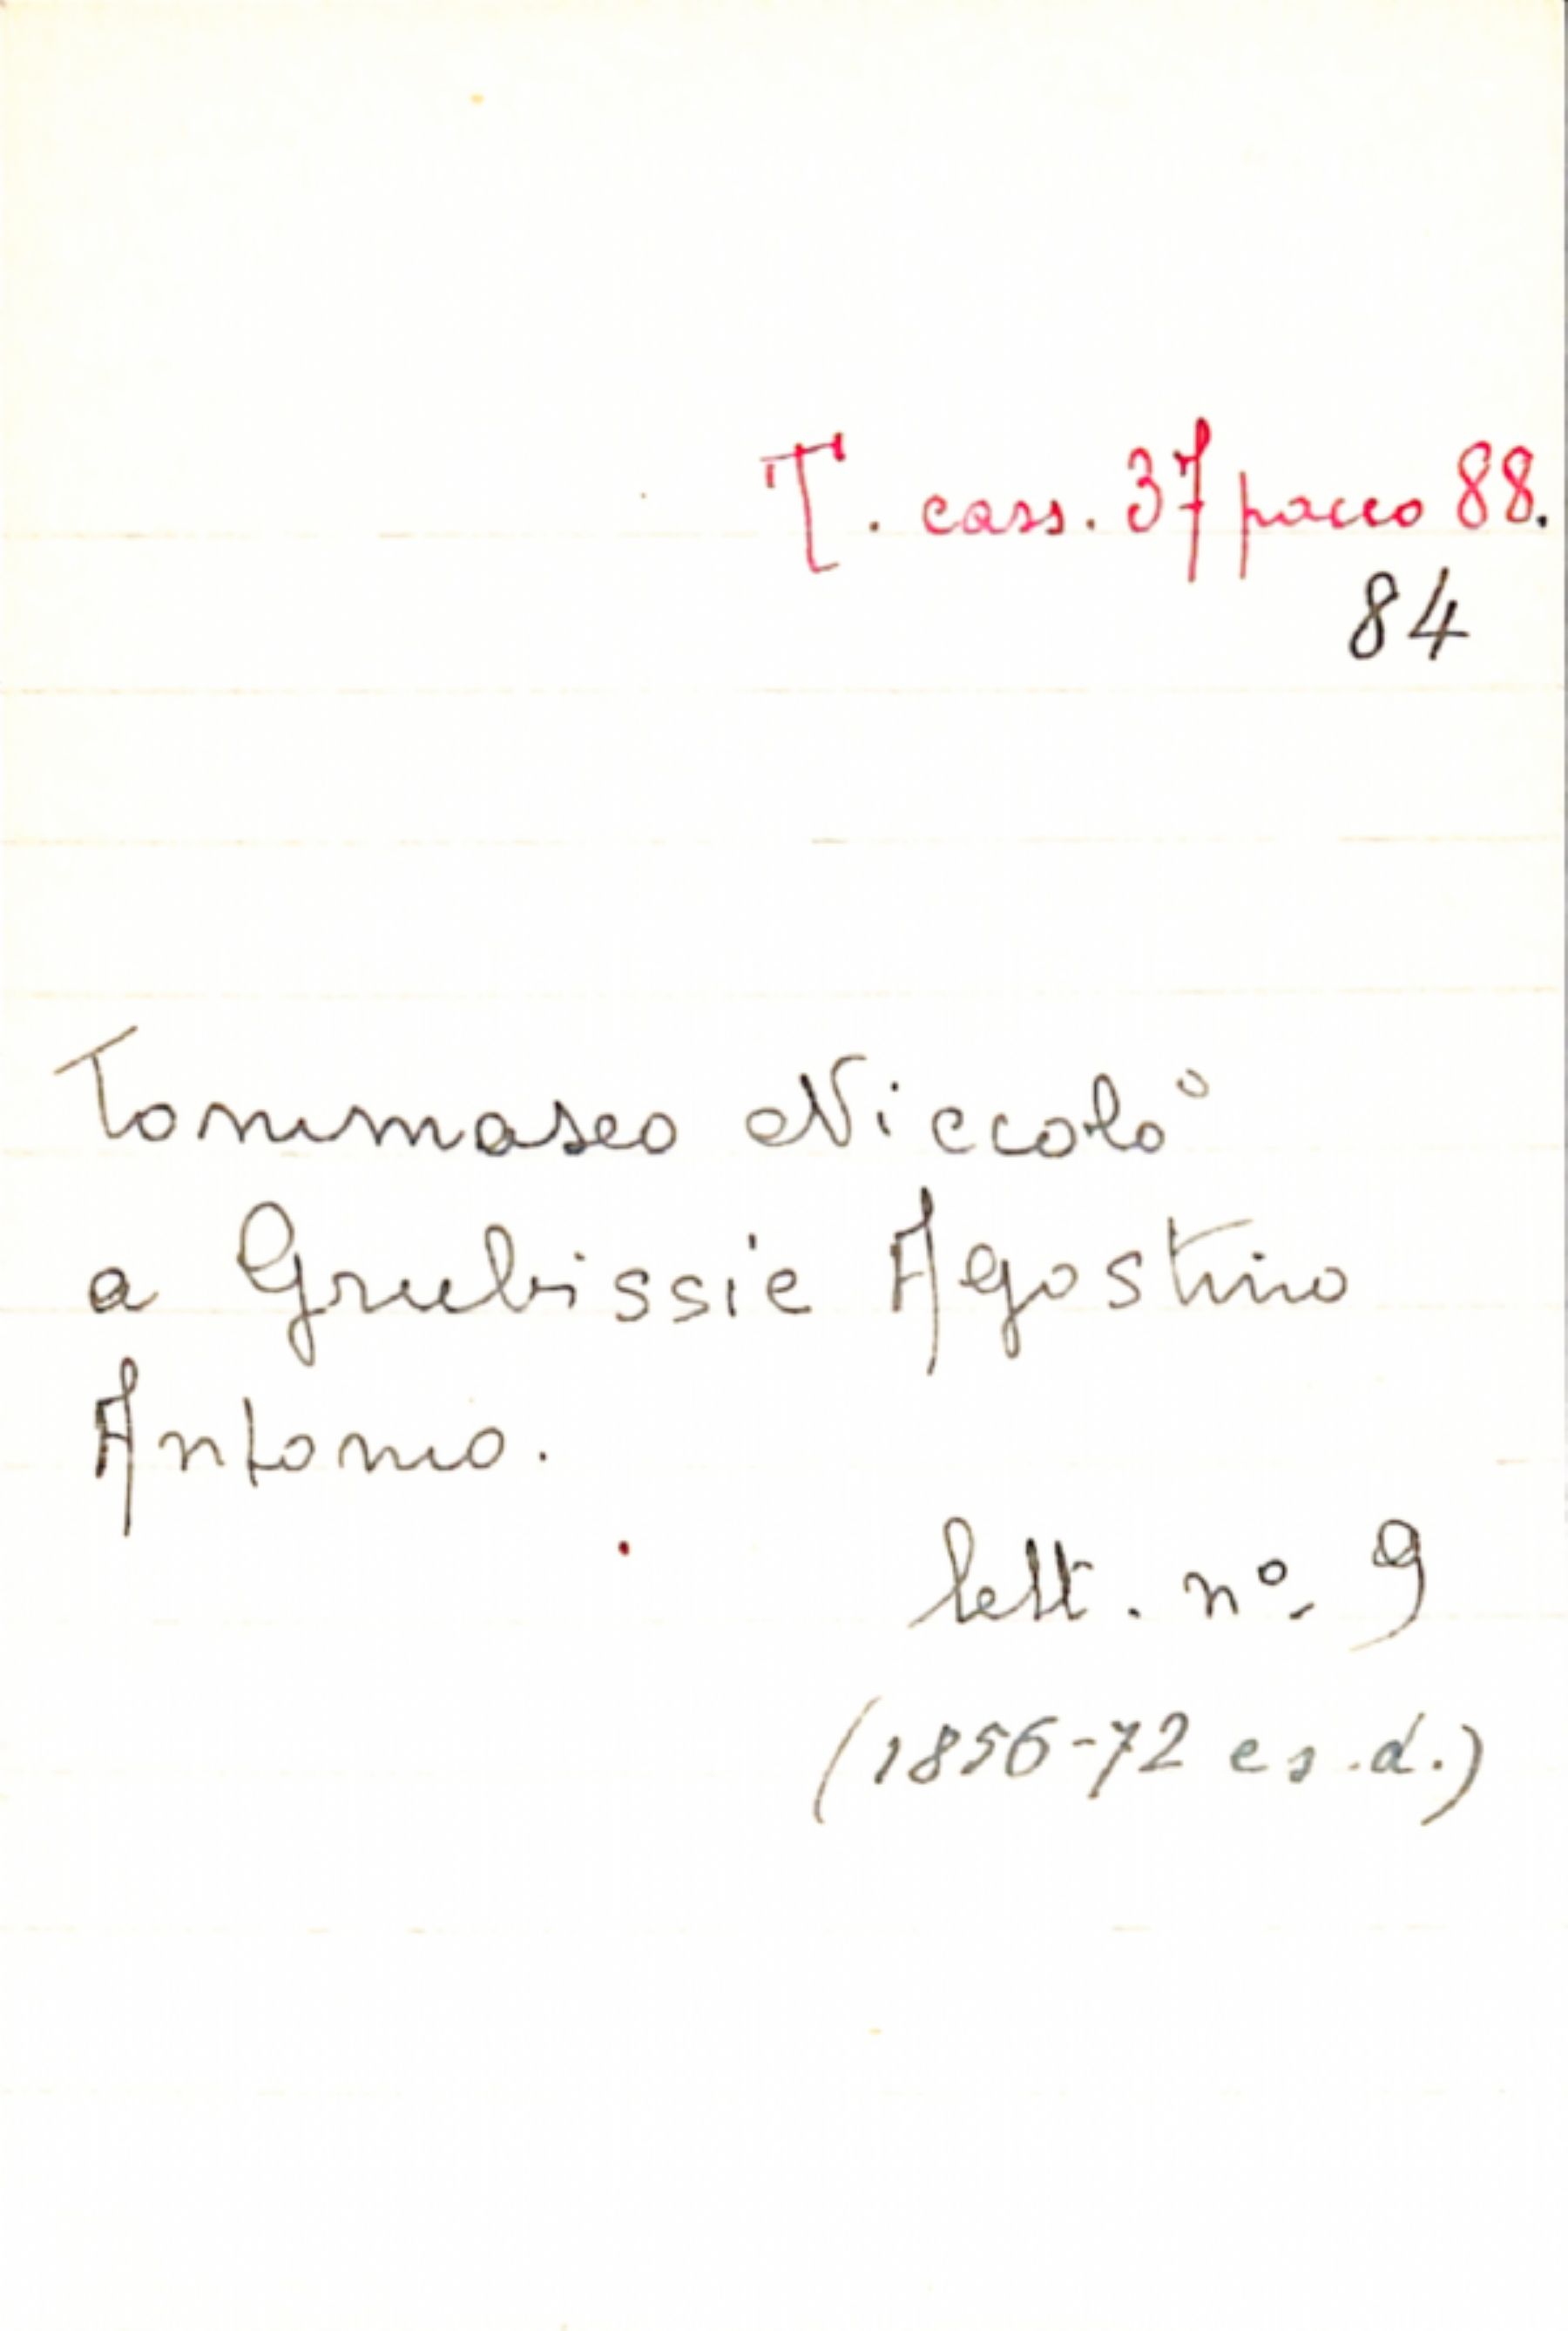 T. cass. 37 pacco 88.
84
Tommaseo Niccolò
a Grubissic Agostino
Antonio.
lett. nº 9
(1856-72 e s.d.)